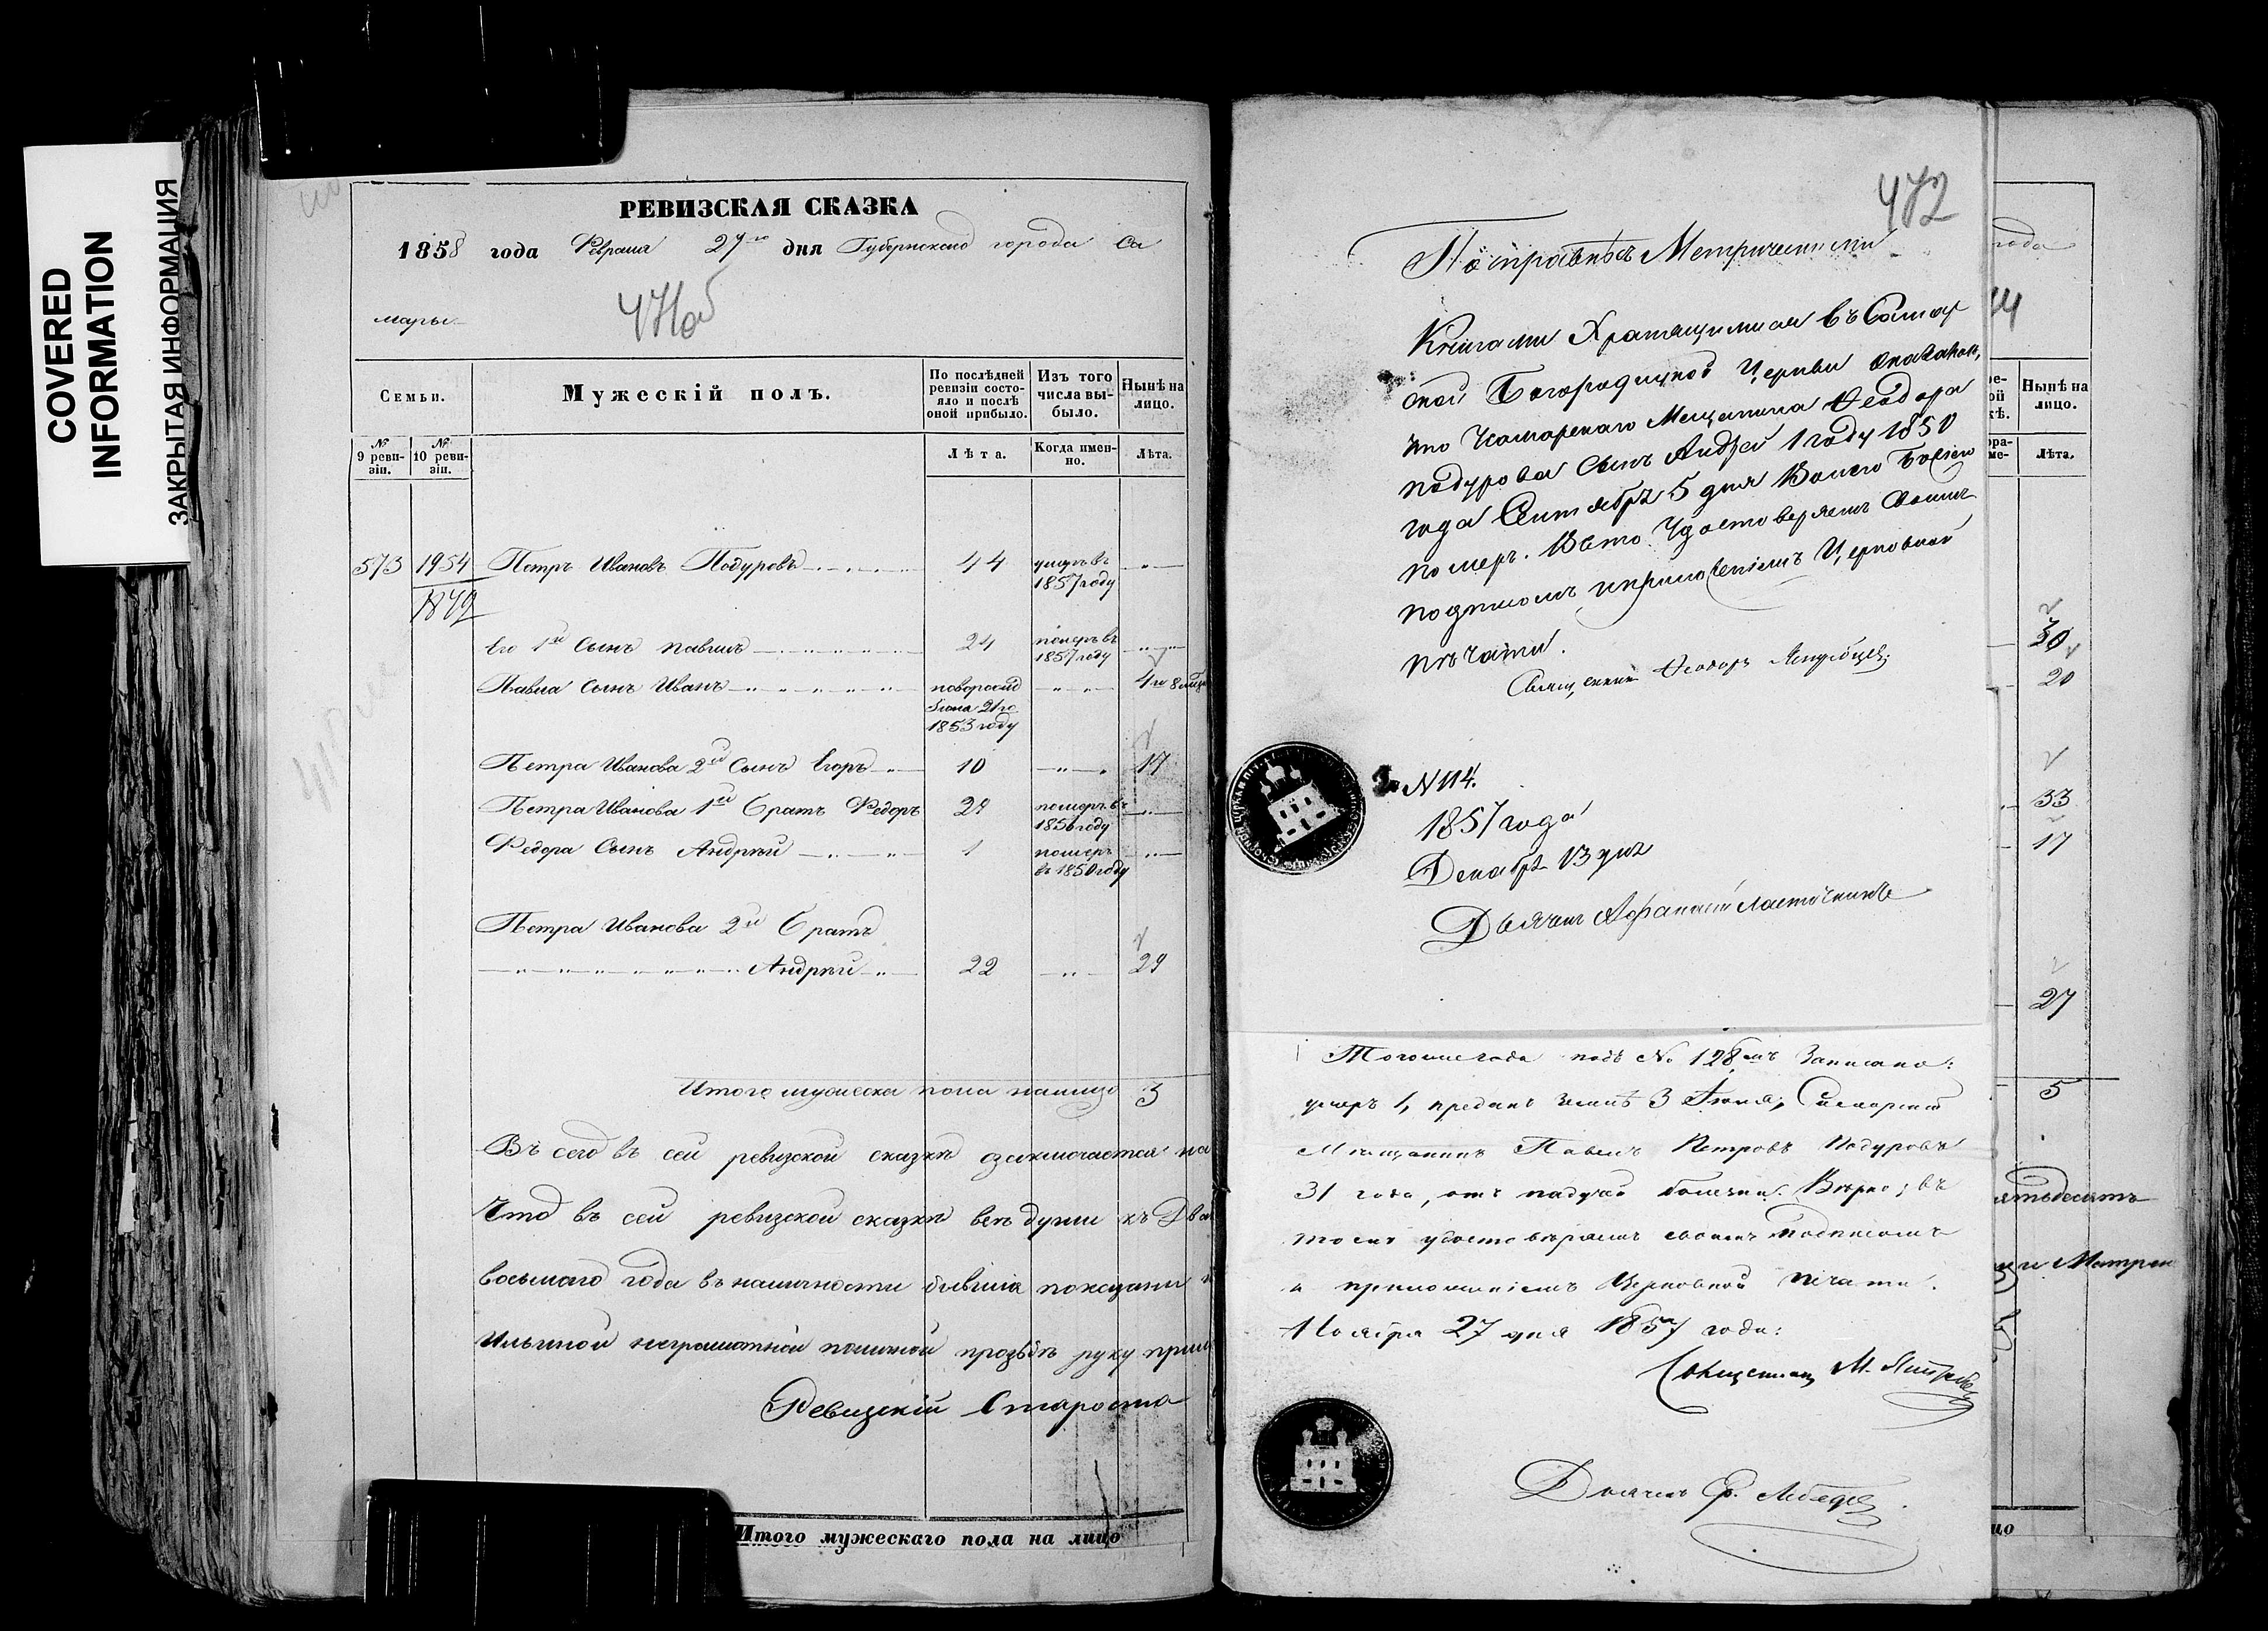 COVERED
INFORMATION
ЗАКРЫТАЯ ИНФОРМАЦИЯ
РЕВИЗСКАЯ СКАЗКА
1858 года Февраля 27го дня Губернского города Са
мары
471об
Семьи.
Мужескій полъ.
По послѣдней ревизіи состояло и послѣ оной прибыло.
Изъ того числа выбыло.
Нынѣ на лицо.
№ 9 ревизіи.
№ 10 ревизіи.
Лѣта.
Когда именно.
Лѣта.
573 1954 Петръ Ивановъ Подуровъ 44 умеръ въ 1857 году
1842
Его 1й Сынъ Павелъ 24 померъ въ 1857 году
Павла Сынъ Иванъ новорожд Іюня 21го 1853 году 4 и 8 мѣс
Петра Иванова 2й Сынъ Егоръ 10 17
Петра Иванова 1й Братъ Федоръ 29 померъ въ 1856 году
Федора Сынъ Андрей 1 померъ въ 1850 году
Петра Иванова 2й Братъ
Андрей 22 29
Итого мужеска пола налицо 3
въ сей ревизской сказкѣ заключается на
Что въ сей ревизской сказкѣ всѣ души къ Два
восьмаго года въ наличности бывшія показаны
Ильиной неграмотной по личной прозьбѣ руку прил
Ревизскій Староста
Итого мужескаго пола на лицо
472
По справкѣ съ Метрическими
Книгами Хранящимися въ Самар
ской Богородицкой Церкви оказалось,
что Самарскаго Мещанина Ѳеодора
Подурова Сынъ Андрей 1 году 1850
года Сентября 5 дня Волею Божіею
померъ. В томъ Удостоверяемъ Своимъ
подписомъ и приложеніемъ Церковной
печати.
Священникъ Ѳеодоръ
N 114.
1857 года
Декабря 13 дня
Дьячекъ Афанасий Ласточкинъ
Тогоже года подъ № 128мъ Записано:
умеръ 1, преданъ землѣ 3 Іюня, Самарский
Мѣщанинъ Павелъ Петровъ Подуровъ
31 года, отъ падучей болезни. Вѣрно; въ
томъ удостовѣряемъ своимъ подписомъ
и приложеніемъ Церковной печати.
Ноября 27 дня 1857 года:
Священникъ М.
Дьячекъ Ф. Лебедев
года
Нынѣ на лицо.
Лѣта.
30
20
33
17
27
5
ятьдесятъ
и Матрен